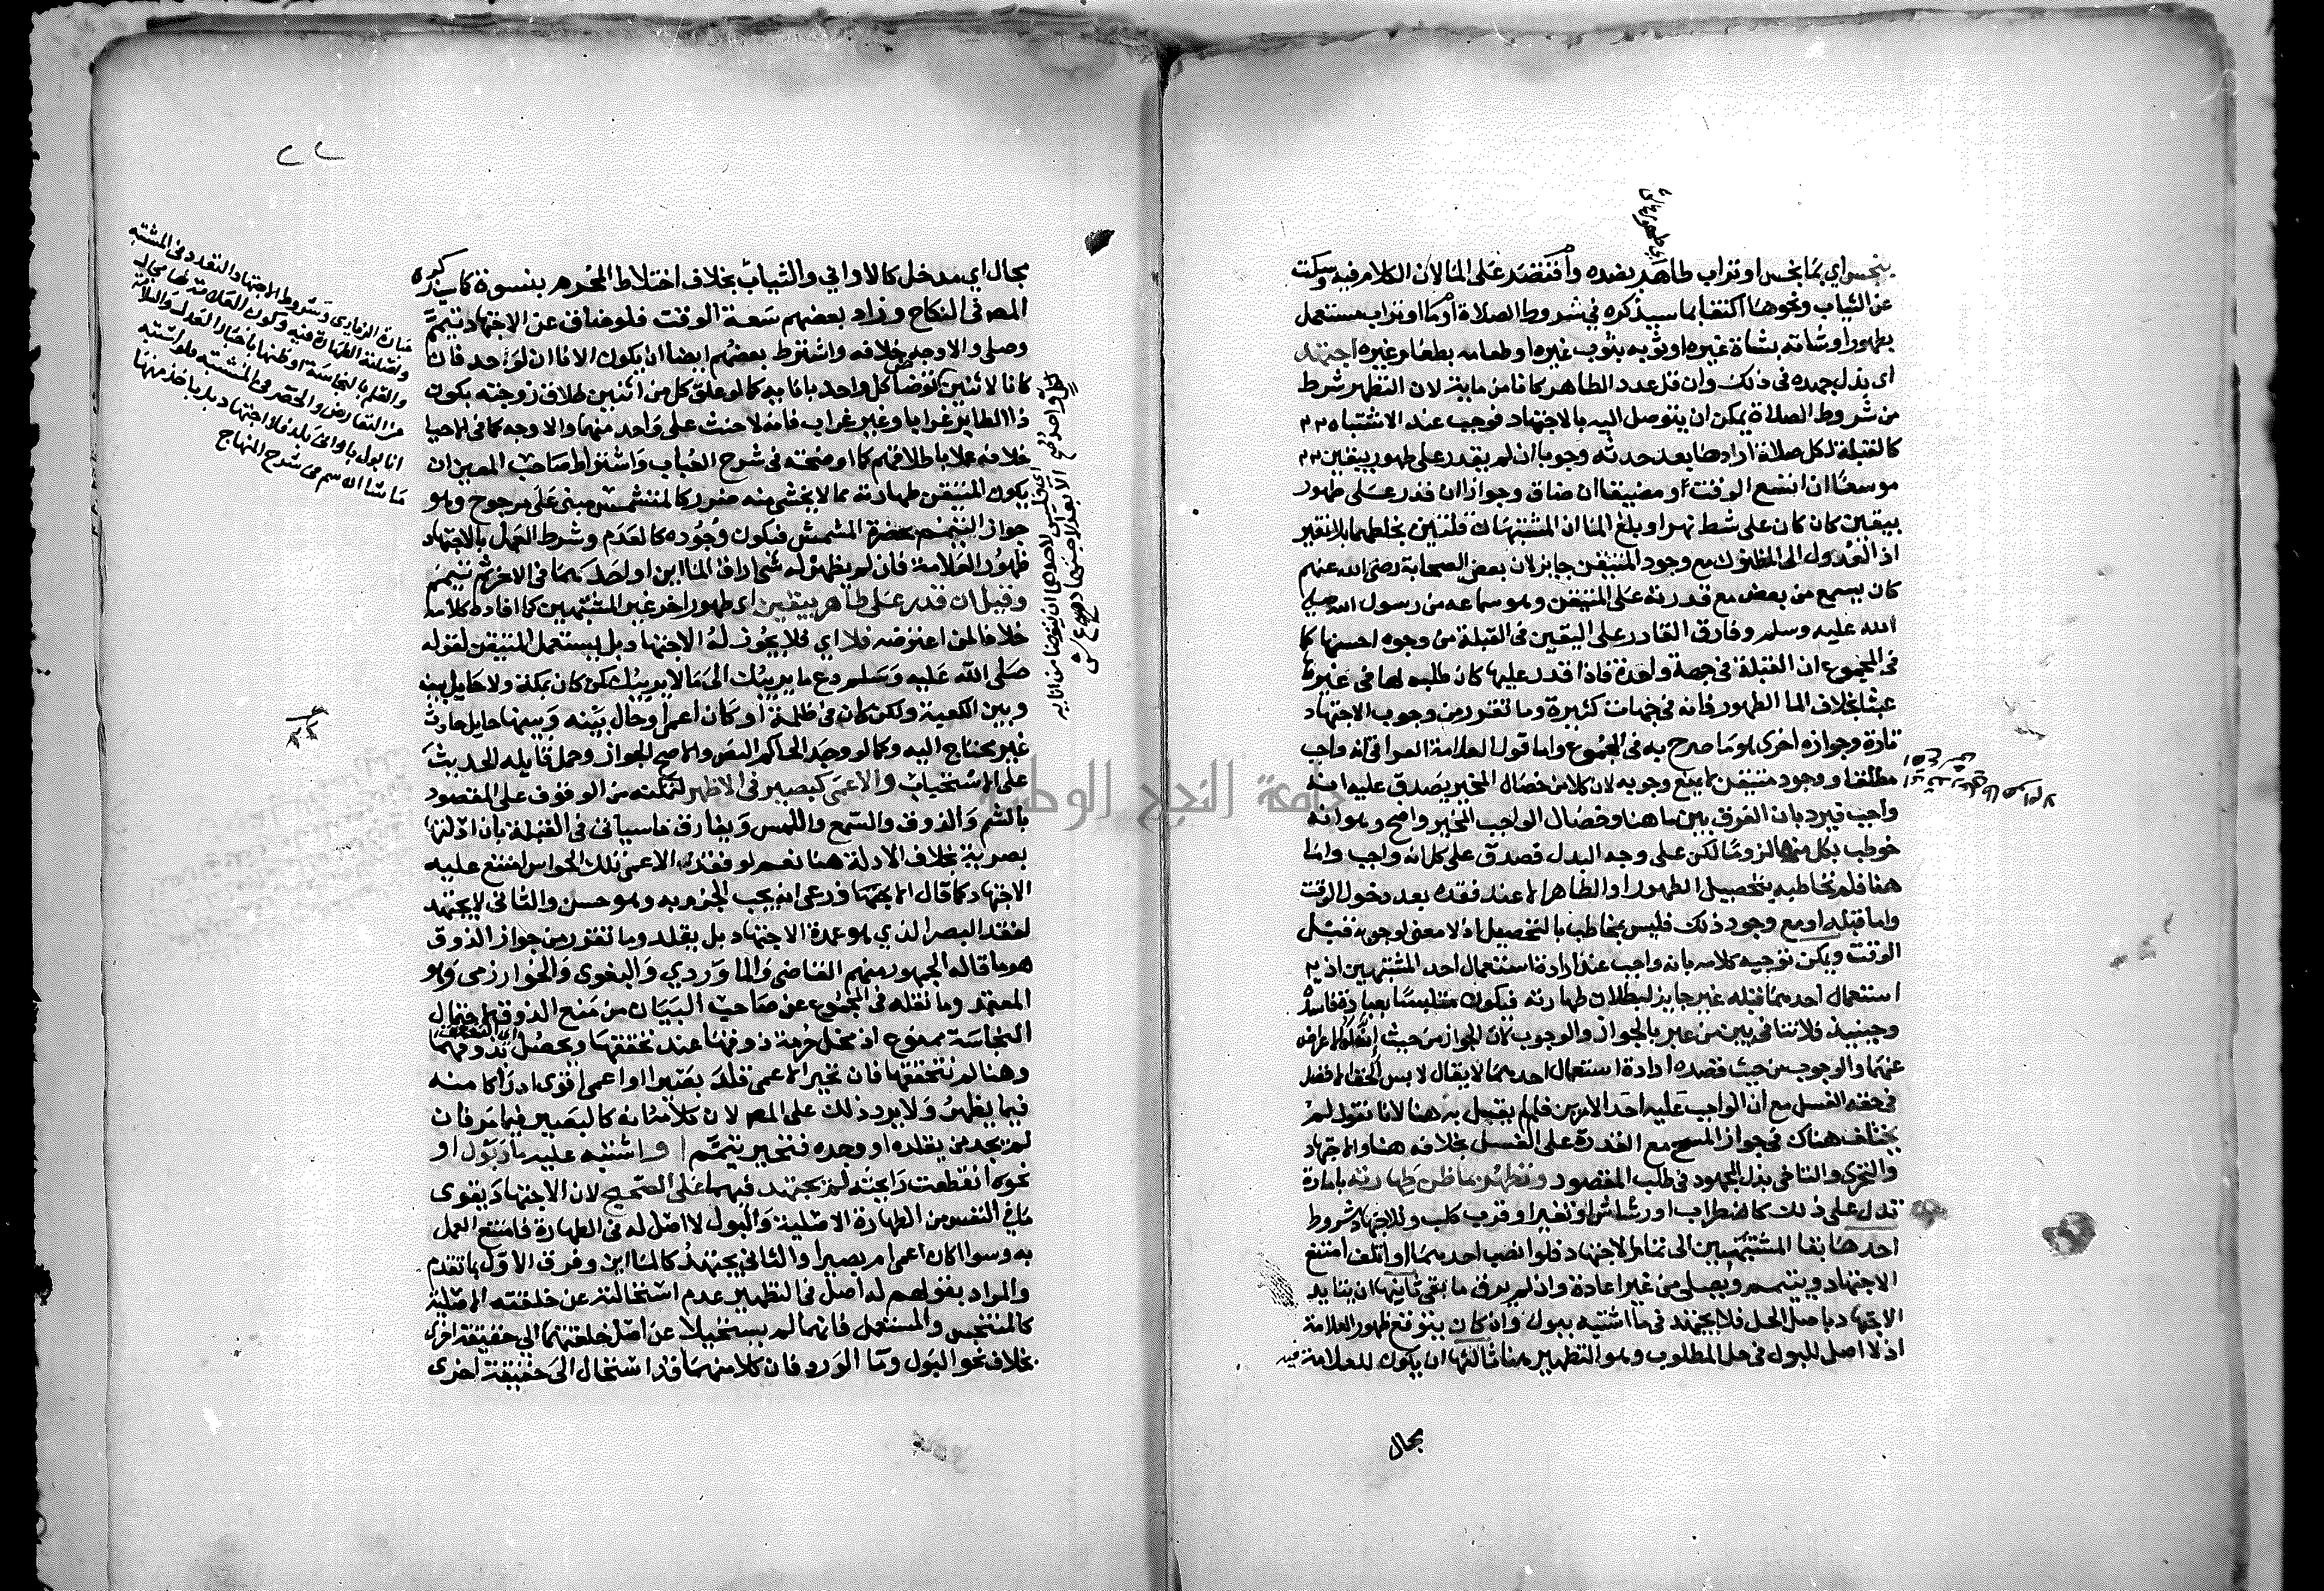 بنجس اي بماء نجس او تراب طاهر بضده واقتصر على الما لان الكلام فيه وسكت
عن الثياب ونحوها اكتفا بما سيذكره في شروط الصلاة او ما او تراب مستعمل
بطهور او شاته بشاة غيره او ثوبه بثوب غيره او طعامه بطعام غيره اجتهد
اي بذل جهده في ذلك وان قل عدد الطاهر كانا من ماية لان التطهر شرط
من شروط الصلاة يمكن ان يتوصل اليه بالاجتهاد فوجب عند الاشتباه
كالقبلة لكل صلاة ارادها بعد حدثه وجوبا ان لم يقدر على طهور بيقين
موسعا ان اتسع الوقت او مضيقا ان ضاق وجوازا ان قدر على طهور
بيقين كان كان على شط نهر او بلغ الماان المشتبهان قلتين بخلطهما بلا تغير
اذ العدول الى المظنون مع وجود المتيقن جايز لان بعض الصحابة رضي الله عنهم
كان يسمع من بعض مع قدرته على المتيقن وهو سماعه من رسول الله صلى
الله عليه وسلم وفارق القادر على اليقين في القبلة من وجوه احسنها كما
في المجموع ان القبلة في جهة واحدة فاذا قدر عليها كان طلبه لها في غيرها
عبثا بخلاف الما الطهور فانه في جهات كثيرة وما تقرر من وجوب الاجتهاد
تارة وجوازه اخرى هو ما صرح به في المجموع واما قول العلامة العراقي انه واجب
مطلقا ووجود متيقن لا يمنع وجوبه لان كلا من خصال المخير يصدق عليه انه
واجب فيرد بان الفرق بين ما هنا وخصال الواجب المخير واضح وهو انه
خوطب بكل منها لزوما لكن على وجه البدل فصدق على كل انه واجب واما
هنا فلم نخاطبه بتحصيل الطهور او الطاهر الا عند فقده بعد دخول الوقت
واما قبله او مع وجود ذلك فليس مخاطب بالتحصيل اذ لا معنى لوجوبه قبل
الوقت ويمكن توجيه كلامه بانه واجب عند ارادة استعمال احد المشتبهين اذ
استعمال احدهما قبله غير جايز لبطلان طهارته فيكون متلبسا بعبادة فاسدة
وحينيذ فلا تنافي بين من عبر بالجواز والوجوب لان الجواز من حيث ان له الاعراض
عنهما والوجوب من حيث قصده ارادة استعمال احدهما لا يقال لابس الخف الافضل
في حقه الغسل مع ان الواجب عليه احد الامرين فلم يقل به هنا لانا نقول لم
يختلف هناك في جواز المسح مع القدرة على الغسل بخلافه هنا والاجتهاد
والتحري والتاخي بذل المجهود في طلب المقصود وتطهر بما ظن طهارته بامارة
تدل على ذلك كاضطراب او رشاش او تغير او قرب كلب وللاجتهاد شروط
احدها بقا المشتبهين الى تمام الاجتهاد فلو انصب احدهما او اتلف امتنع
الاجتهاد ويتيمم ويصلي من غير اعادة وان لم يرق ما بقي ثانيها ان يتايد
الاجتهاد باصل الحل فلا يجتهد في ما اشتبه ببول وان كان يتوقع ظهور العلامة
اذ لا اصل للبول في حل المطلوب وهو التطهير هنا ثالثها ان يكون للعلامة فيه
مجال
مجال اي مدخل كالاواني والثياب بخلاف اختلاط المحرم بنسوة كما سيذكره
المص في النكاح وزاد بعضهم سعة الوقت فلو ضاق عن الاجتهاد تيمم
وصلى والاوجه خلافه واشترط بعضهم ايضا ان يكون الاناان لواحد فان
كانا لاثنين توضا كل واحد بانايه كما لو علق كل من اثنين طلاق زوجته بكون
ذا الطاير غرابا وغير غراب فانه لا حنث على واحد منهما والاوجه كما في الاحيا
خلافه عملا باطلاقهم كما اوضحته في شرح العباب واشتراط صاحب المعين ان
يكون المتيقن طهارته مما لا يخشى منه ضرر كالمتشمس مبني على مرجوح وهو
جواز التيمم بحضرة المشمس فيكون وجوده كالعدم وشرط العمل بالاجتهاد
ظهور العلامة فان لم يظهر له شي اراق الماين او احدهما في الاخر ثم تيمم
وقيل ان قدر على طاهر بيقين اي طهور اخر غير المشتبهين كما افاده كلامه
خلافا لمن اعترضه فلا اي فلا يجوز له الاجتهاد بل يستعمل المتيقن لقوله
صلى الله عليه وسلم دع ما يريبك الى ما لا يريبك كمن كان بمكة ولا حايل بينه
وبين الكعبة ولكن كان في ظلمة او كان اعمى او حال بينه وبينها حايل حادث
غير محتاج اليه وكما لو وجد الحاكم النص والاصح الجواز وحمل قايله الحديث
على الاستحباب والاعمى كبصير في الاظهر لتمكنه من الوقوف على المقصود
بالشم والذوق والسمع واللمس ويفارق ما سياتي في القبلة بان ادلتها
بصرية بخلاف الادلة هنا نعم لو فقد الاعمى تلك الحواس امتنع عليه
الاجتهاد كما قال الاجتهاد وزعم انه يجب الجزم به وهو حسن والثاني لا يجتهد
لفقد البصر الذي هو عمدة الاجتهاد بل يقلد وما تقرر من جواز الذوق
هو ما قاله الجمهور منهم القاضي والماوردي والبغوي والخوارزمي وهو
المعتمد وما نقله في المجموع عن صاحب البيان من منع الذوق لاحتمال
النجاسة ممنوع اذ محل حرمة ذوقها عند تحققها ويحصل بذوقهما
وهنا لم نتحققها فان تحير الاعمى قلد بصيرا او اعمى اقوى ادراكا منه
فيما يظهر ولا يرد ذلك على المص لان كلامه انه كالبصير فيما مر فان
لم يجد من يقلده او وجده فتحير تيمم او اشتبه عليه ماء وبول او
نحوه انقطعت رايحته لم يجتهد فيهما على الصحيح لان الاجتهاد يقوى
ما في النفس من الطهارة الاصلية والبول لا اصل له في الطهارة فامتنع العمل
به وسوا اكان اعمى ام بصيرا والثاني يجتهد كالماين وفرق الاول بما تقدم
والمراد بقولهم له اصل في التطهير عدم استحالته عن خلقته الاصلية
كالمتنجس والمستعمل فانهما لم يستحيلا عن اصل خلقتهما الى حقيقة اخرى
بخلاف نحو البول وماء الورد فان كلا منهما قد استحال الى حقيقة اخرى
وشروط الاجتهاد التعدد في المشتبه
واصلية الطهارة فيه وكون العلامة لها مجال
والعلم بالنجاسة او ظنها باخبار العدل والسلامة
من التعارض والحصر في المشتبه فلو اشتبه
انا بول باواني بلد فلا اجتهاد بل ياخذ منها
ما شا اه سم على شرح المنهاج
جامعة النجاح الوطنية